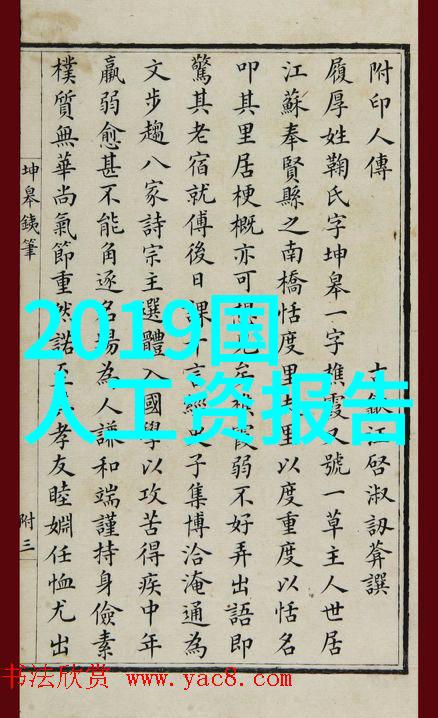 附印人傳
汪啓淑訒葊撰
履厚姓鞠氏字坤皋一字樵霞又號一草主人世居
江蘇奉賢縣之南橋恬度里里以度重度以恬名
叩其里居梗概亦可見矣霞弱不好弄出語即
驚其老宿就傅後日課千言經史子集博洽淹通為
文步趨八家詩宗主選體入國學以攻苦得疾中年
羸弱愈甚不能角逐名場為人謙和端謹持身儉素
樸質無華尚氣節重然諾至孝友睦婣任恤尤出
坤皋銕筆
附三
2019国
人工资报告
书法欣赏 www.yac8.com